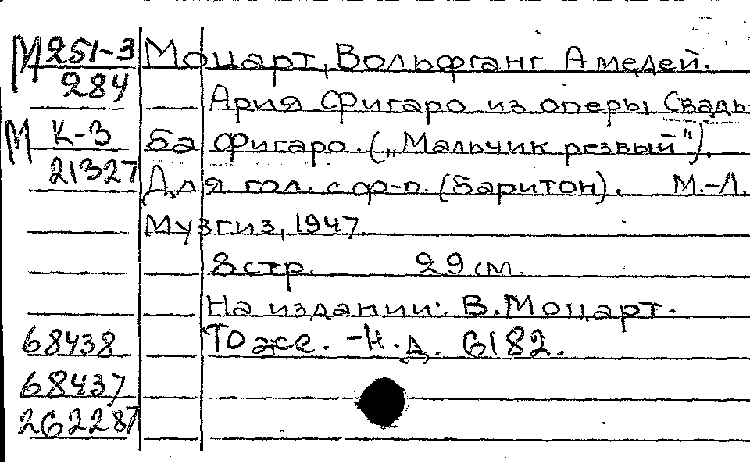 М 251-3 Моцарт, Вольфганг Амедей.
284 Ария Фигаро из оперы Свадь
М К-3 ба Фигаро. („Мальчик резвый").
21327 Для гол. с ф-п. (Баритон). М.-Л.
Музгиз, 1947
8 стр. 29 см.
На издании: В. Моцарт.
68438 То же. - Н.д. 6182.
68437
262287